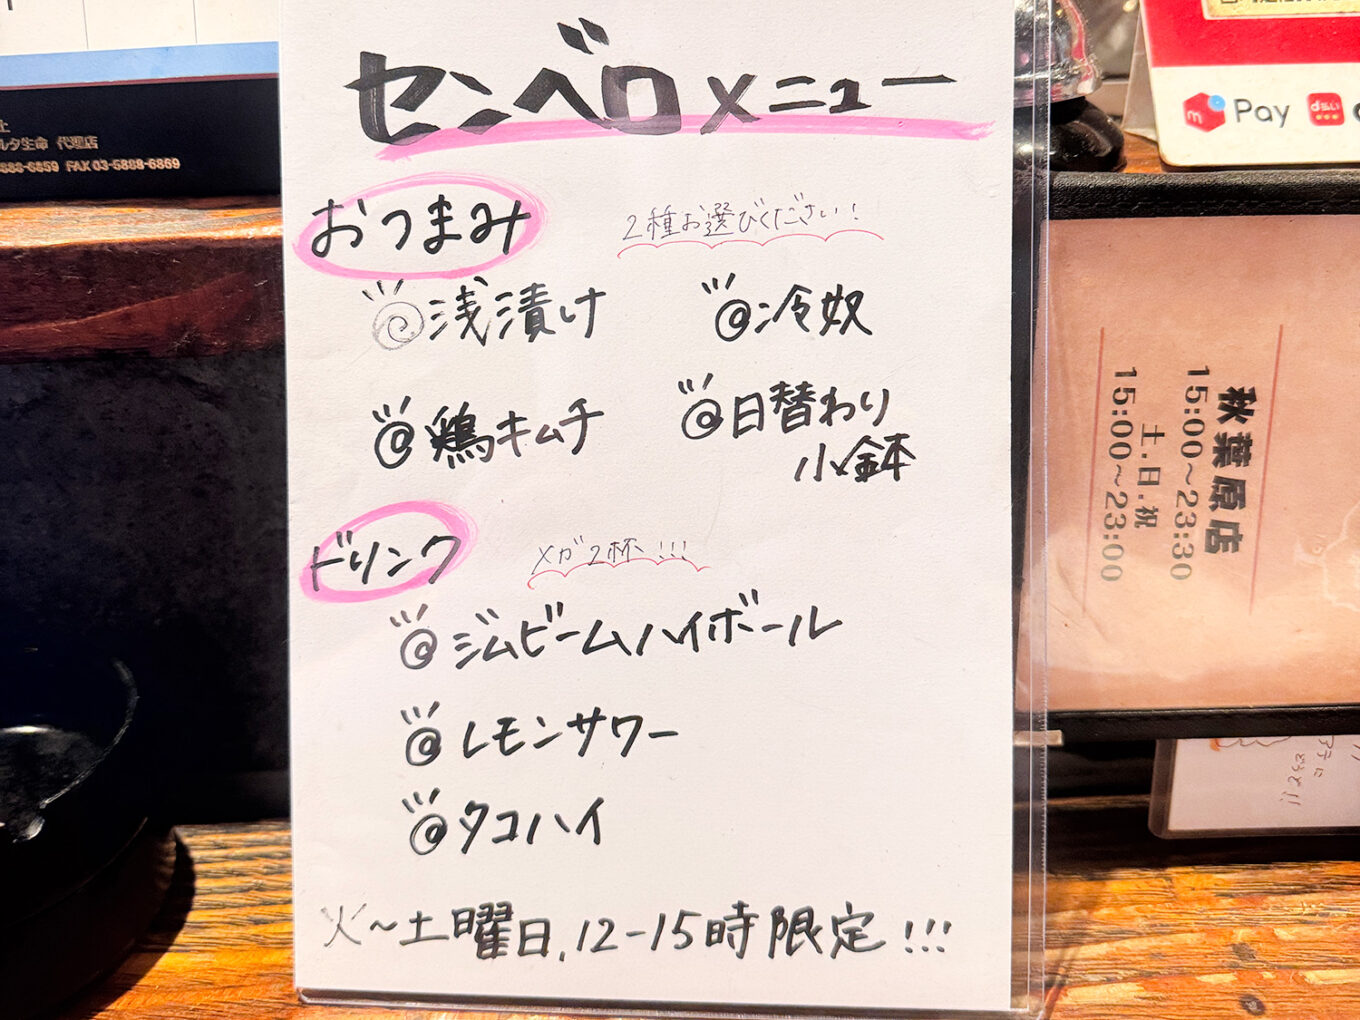 センベロメニュー
おつまみ 2種お選びください!
浅漬け 冷奴
鶏キムチ 日替わり
小鉢
ドリンク メガ2杯!!!
ジムビームハイボール
レモンサワー
タコハイ
火~土曜日,12-15時限定!!!
代理店
FAX 03-5888-6869
Pay
d払い
秋葉原店
15:00~23:30
土.日.祝
15:00~23:00